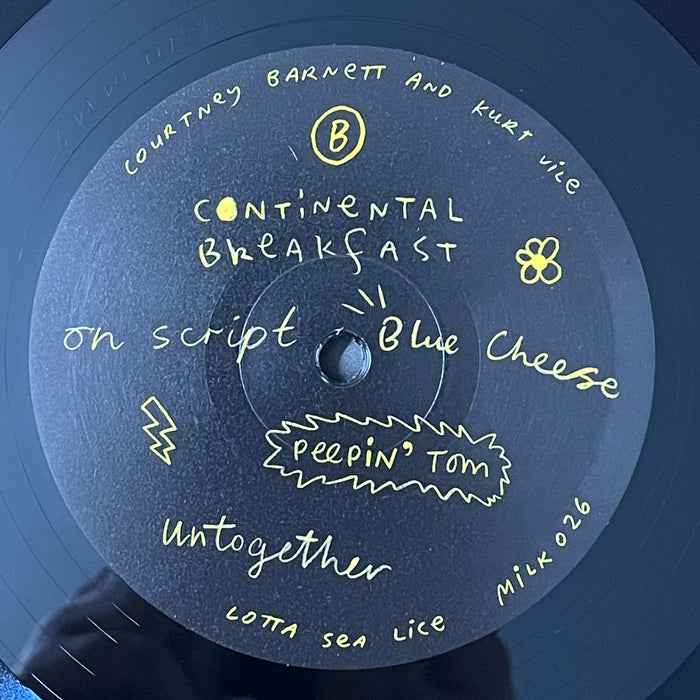 COURTNEY BARNETT AND KURT VILE
B
CONTINENTAL
BREAKFAST
on script
Blue Cheese
PEEPIN' TOM
Untogether
MILK 026
LOTTA SEA LICE